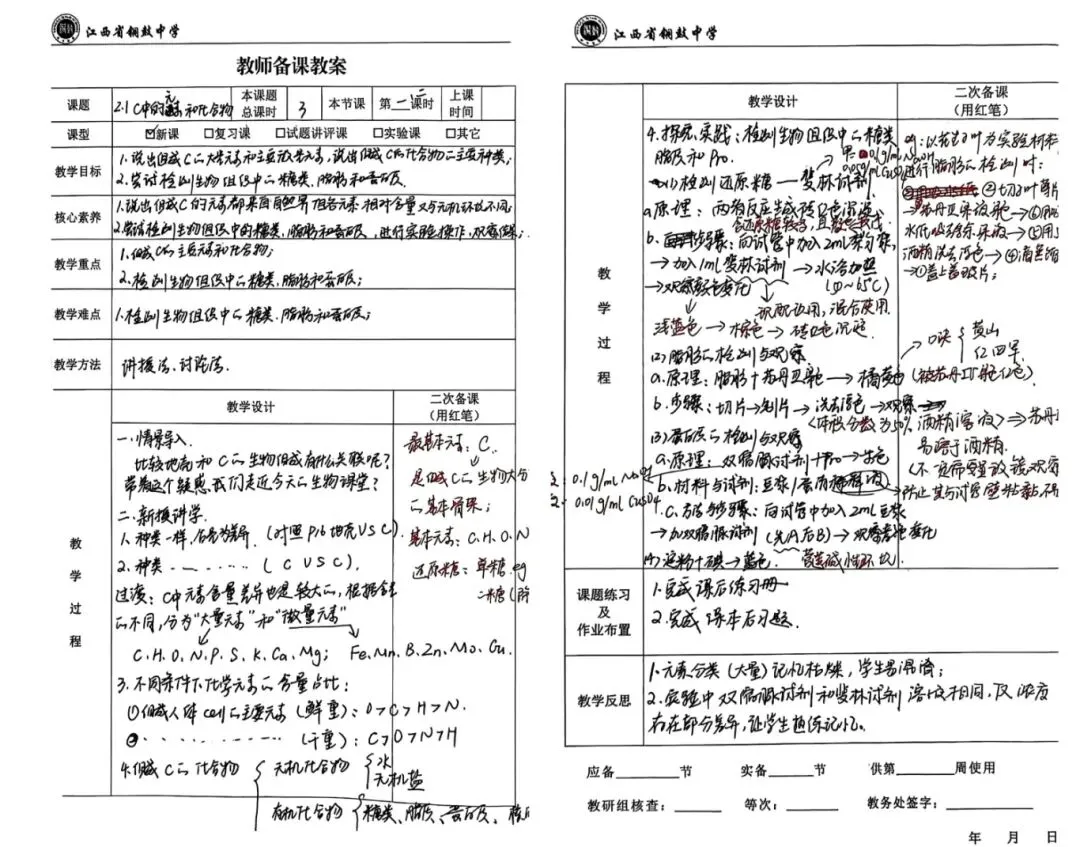 江西省铜鼓中学
教师备课教案
课题 2.1 C中的元素和化合物 本课题总课时 3 本节课 第一二课时 上课时间
课型 ☑新课 □复习课 □试题讲评课 □实验课 □其它
教学目标 1.说出组成C的大量元素和主要微量元素,说出组成C的化合物的主要种类;
2.尝试检测生物组织中的糖类、脂肪和蛋白质.
核心素养 1.说出组成C的元素都来自自然界,但各元素相对含量又与无机环境不同;
2.尝试检测生物组织中的糖类、脂肪和蛋白质,进行实验操作,观察
教学重点 1.组成C的主要元素和化合物;
2.检测生物组织中的糖类、脂肪和蛋白质;
教学难点 1.检测生物组织中的糖类、脂肪和蛋白质;
教学方法 讲授法、讨论法.
教学过程
教学设计
一.情景导入.
比较地壳和C的生物组成有什么关联呢?
带着这个疑惑,我们走近今天的生物课堂?
二.新授讲学.
1.种类一样,含量差异 (对照P16 地壳VS C).
2.种类 ........ (C VS C).
过渡:C中元素含量差异也是较大的,根据含量
的不同,分为“大量元素”和“微量元素”
C.H.O.N.P.S.K.Ca.Mg; Fe.Mn.B.Zn.Mo.Cu.
3.不同条件下化学元素的含量占比:
①组成人体cell的主要元素(鲜重):O>C>H>N.
②........ (干重):C>O>N>H
4.组成C的化合物 无机化合物 水
无机盐
有机化合物 糖类、脂质、蛋白质、核
二次备课
(用红笔)
最基本元素:C.
是组成C的生物大分
的基本骨架;
基本元素:C.H.O.N
还原糖:单糖.eg
二糖(
江西省铜鼓中学
教学过程
教学设计
4.探究.实践:检测生物组织中的糖类
脂质和Pro.
(1)检测还原糖 — 斐林试剂
甲 0.1g/ml NaOH
0.05g/ml CuSO4
a.原理:两者反应生成砖红色沉淀
含还原糖较多,且颜色较浅
b.步骤:向试管中加入2mL待测液
→加入1mL斐林试剂→水浴加热
(50~65℃)
→观察颜色变化
现配现用,混合使用.
浅蓝色→棕色→砖红色沉淀
(2)脂肪的检测与观察
a.原理:脂肪+苏丹Ⅲ染→橘黄色(被苏丹Ⅳ染红色)
b.步骤:切片→制片→洗去浮色→观察
(体积分数为50%酒精溶液)→苏丹
易溶于酒精.
(3)蛋白质的检测与观察
a.原理:双缩脲试剂+Pro→紫色
b.材料与试剂:豆浆/蛋清稀释液
A:0.1g/mL NaOH
B:0.01g/mL CuSO4
c.方法步骤:向试管中加入2mL豆浆
→加双缩脲试剂(先A后B)→观察颜色变化
营造碱性环境
(4)淀粉+碘→蓝色.
二次备课
(用红笔)
例:以花生子叶为实验材料
进行脂肪的检测时:
②切子叶薄片
→苏丹Ⅲ染液染→
酒精洗去浮色→④滴
→①盖上盖玻片;
口诀 黄山
红四军
课题练习及作业布置 1.完成课后练习册
2.完成课本后习题.
教学反思 1.元素分类(大量)记忆枯燥,学生易混淆;
2.实验中双缩脲试剂和斐林试剂溶液相同,仅浓度
存在部分差异,让学生熟练记忆。
应备____节 实备____节 供第____周使用
教研组核查:____ 等次:____ 教务处签字:____
年 月 日